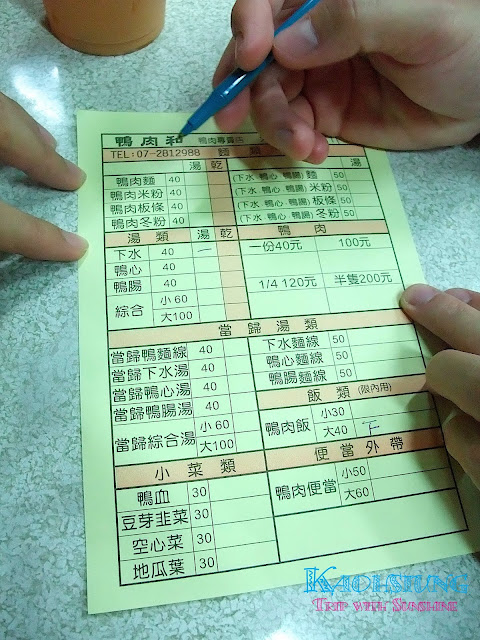 鴨肉和 鴨肉專賣店
TEL:07-2812988 麵類
湯 乾 湯
鴨肉麵 40 (下水 鴨心 鴨腸) 麵 50
鴨肉米粉 40 (下水 鴨心 鴨腸) 米粉 50
鴨肉板條 40 (下水 鴨心 鴨腸) 板條 50
鴨肉冬粉 40 (下水 鴨心 鴨腸) 冬粉 50
湯類 湯 乾
下水 40 一
鴨心 40
鴨腸 40
綜合 小60
大100
鴨肉
一份40元 100元
1/4 120元 半隻200元
當歸湯類
當歸鴨麵線 40
當歸下水湯 40
當歸鴨心湯 40
當歸鴨腸湯 40
當歸綜合湯 小60
大100
下水麵線 50
鴨心麵線 50
鴨腸麵線 50
飯類 (限內用)
鴨肉飯 小30
大40 下
便當外帶
鴨肉便當 小50
大60
小菜類
鴨血 30
豆芽韭菜 30
空心菜 30
地瓜葉 30
KAOHSIUNG
TRIP WITH SUNSHINE